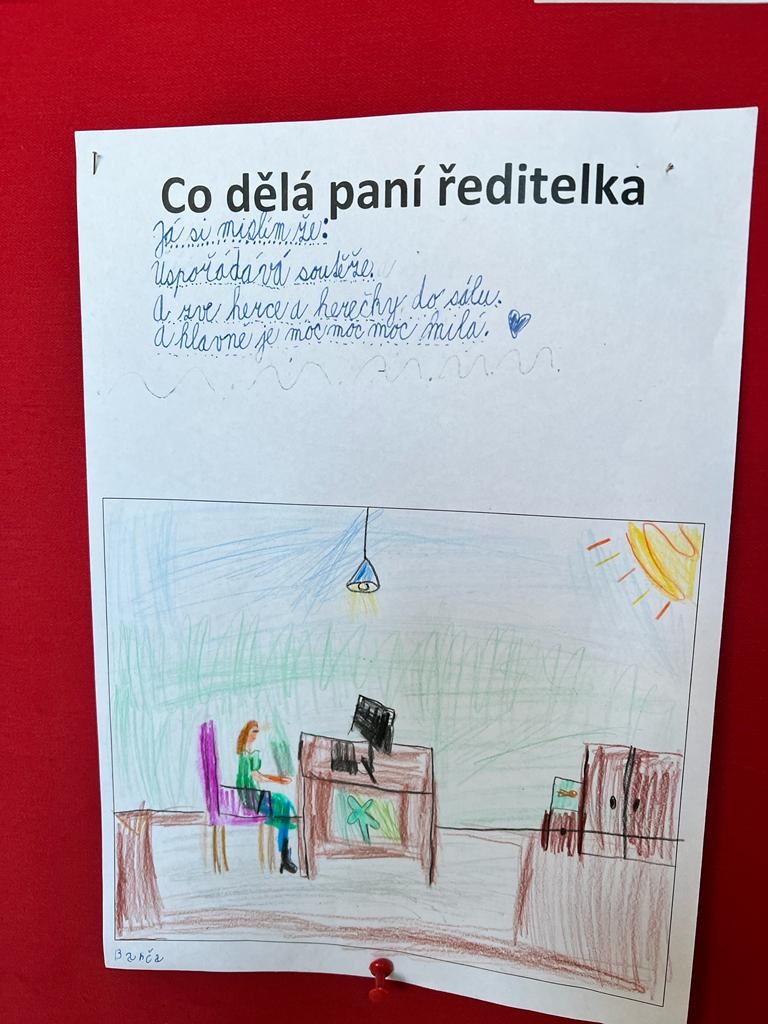 Co dělá paní ředitelka
Já si mislím že:
Uspořádává soutěže.
A zve herce a herečky do sálu.
A hlavně je moc moc moc milá.
Barča